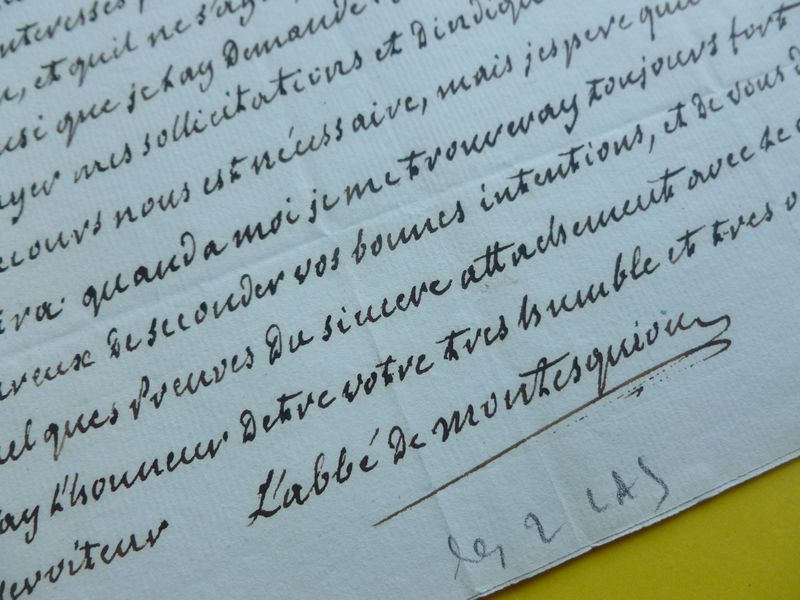 nteresses
et quil ne s'ag
que je luy demande
mes sollicitations et d'indiqu
ecours nous est nécessaire, mais jespere que
ra. quand a moi je me trouveray toujours fort
ureux de seconder vos bonnes intentions, et de vous d
uelques preuves du sincere attachement avec le
ay l'honneur detre votre tres humble et tres o
serviteur L'abbé de montesquiou
les 2 LAS